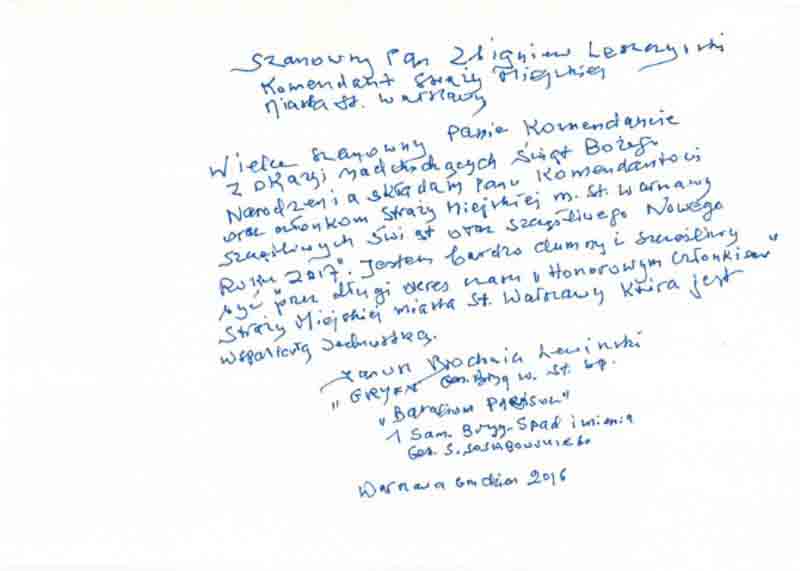 Szanowny Pan Zbigniew Leszczyński
Komendant Straży Miejskiej
Miasta St. Warszawy
Wielce szanowny Panie Komendancie
Z okazji nadchodzących Świąt Bożego
Narodzenia składam Panu Komendantowi
oraz członkom Straży Miejskiej m. St. Warszawy
szczęśliwych Świąt oraz szczęśliwego Nowego
Roku 2017". Jestem bardzo dumny i szczęśliwy
być przez długi okres czasu "Honorowym Członkiem"
Straży Miejskiej miasta St. Warszawy która jest
wspaniałą Jednostką.
Janusz Brochwicz Lewiński
"GRYF" Gen. Bryg w. St. sp.
"Batalion PARASOL"
1 Sam. Bryg. Spad imienia
Gen. S. Sosabowskiego
Warszawa Grudzień 2016